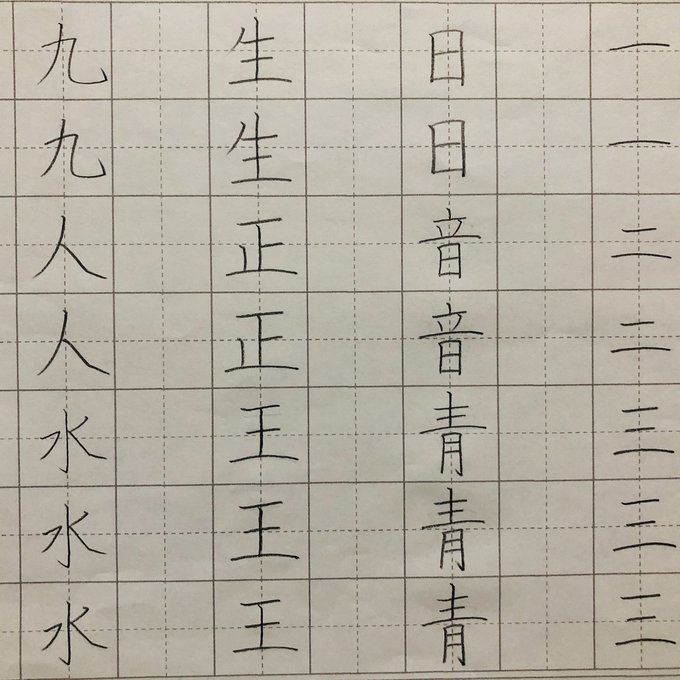 一一二二三三三
日日音音青青青
生生正正王王王
九九人人水水水